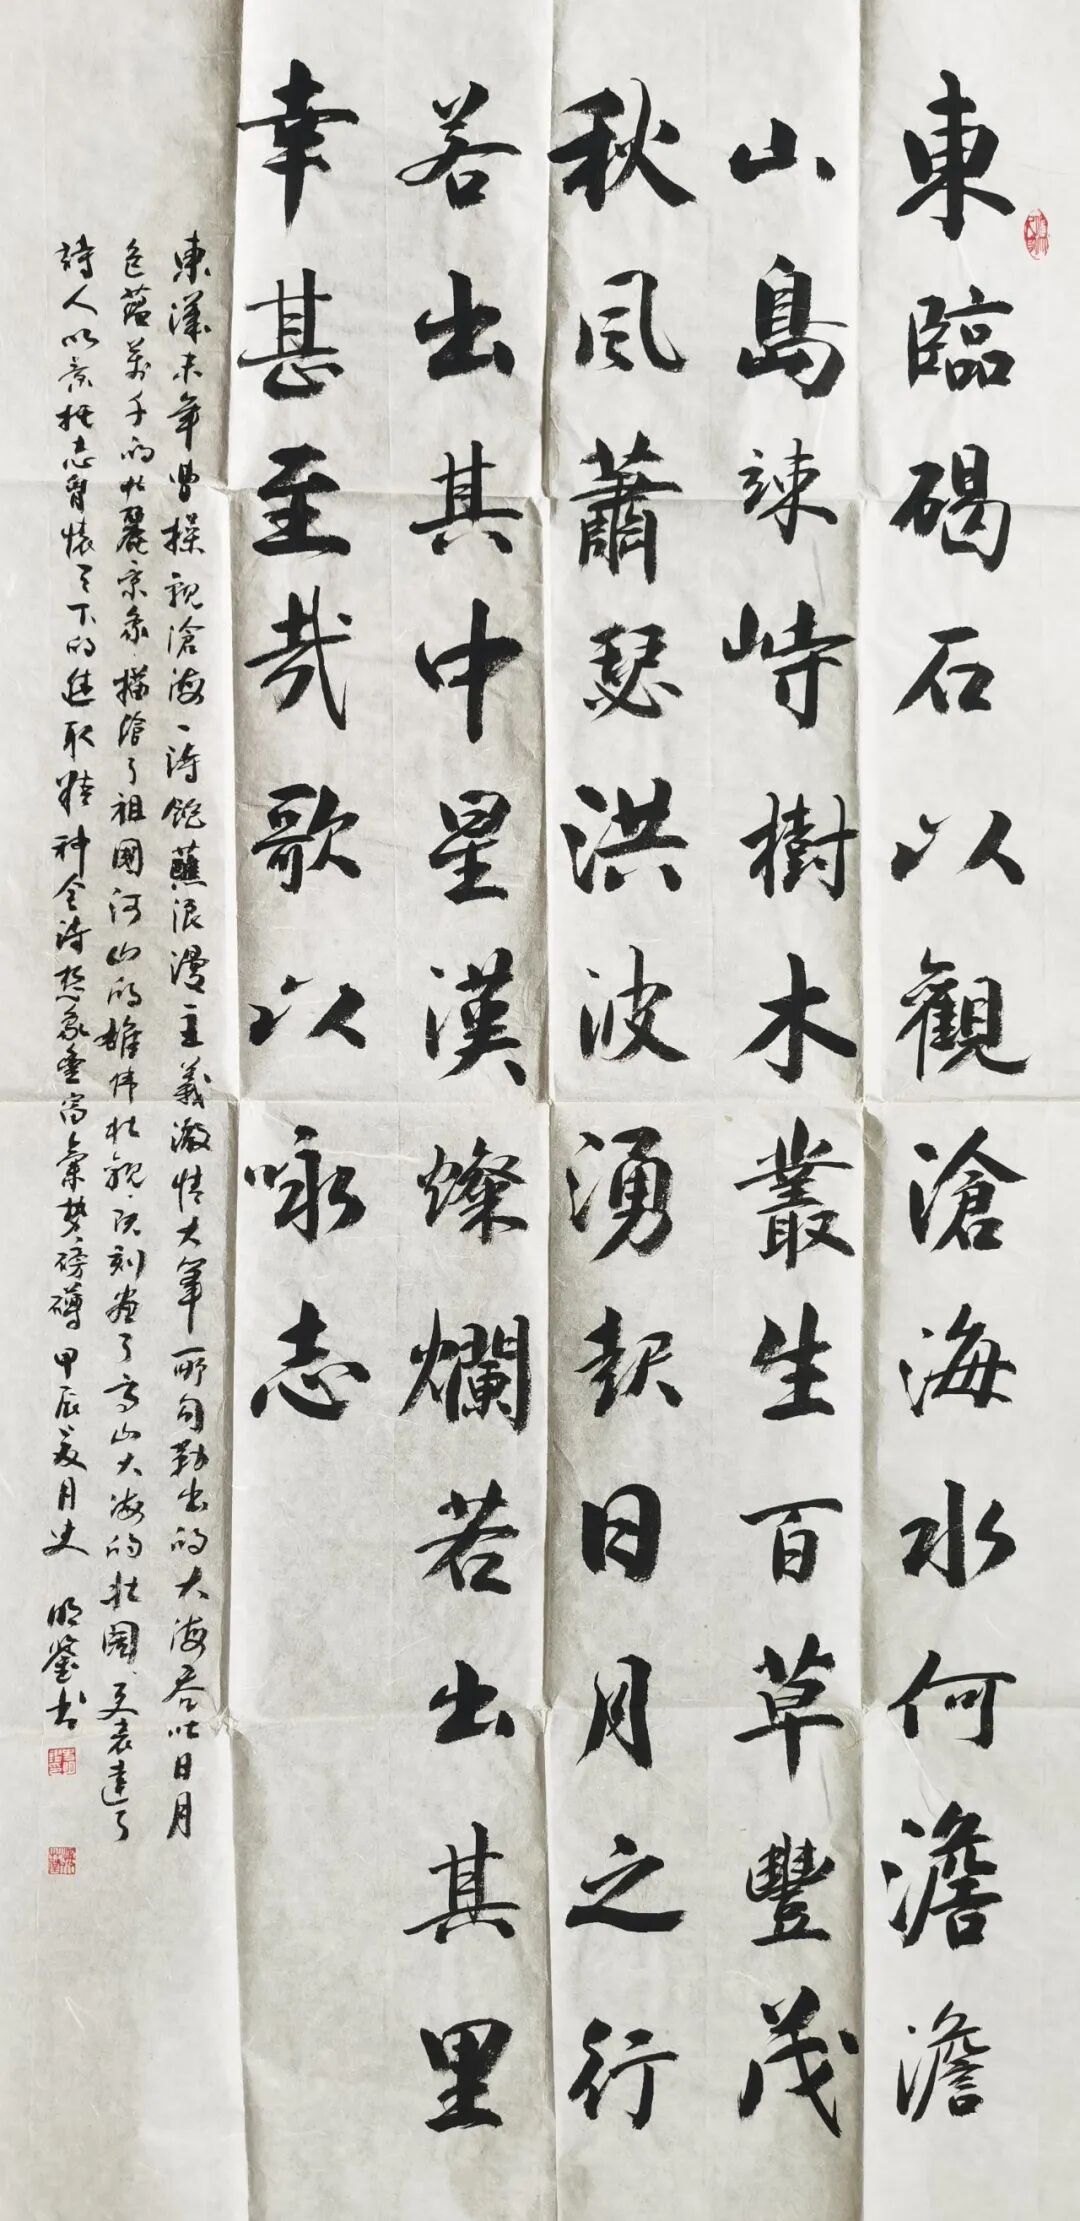 東臨碣石以觀滄海水何澹澹
山島竦峙樹木叢生百草豐茂
秋風蕭瑟洪波湧起日月之行
若出其中星漢燦爛若出其里
幸甚至哉歌以咏志
東漢末年曹操觀滄海一诗飽蘸浪漫主義激情大筆所勾勒出的大海吞吐日月
包蕴萬千的壮麗景象描繪了祖國河山的雄伟壮觀既刻畫了高山大海的壮闊更表達了
詩人以景托志胸懷天下的進取精神全诗想象豐富氣势磅礴甲辰夏月史明鑒书